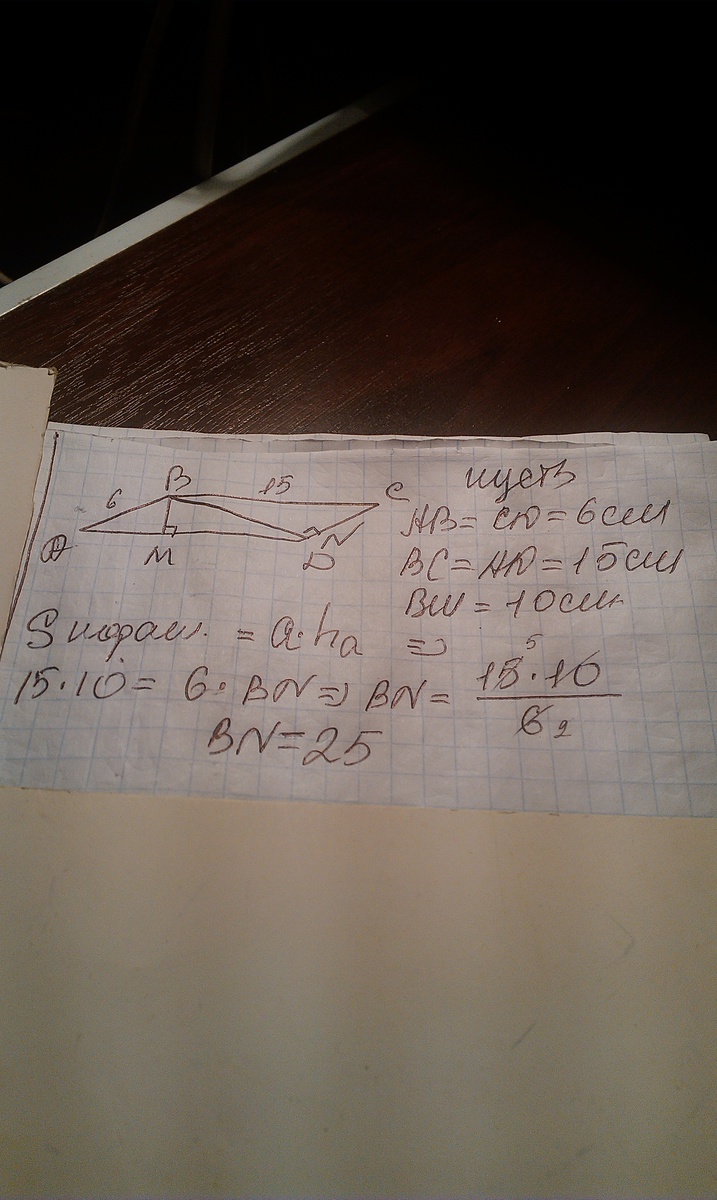 пусть
B 15 C
6
A M D N
AB = CD = 6 см
BC = AD = 15 см
BM = 10 см
S парал. = a · hₐ ⇒
15 · 10 = 6 · BN ⇒ BN = 15 5 · 10 / 6 2
BN = 25